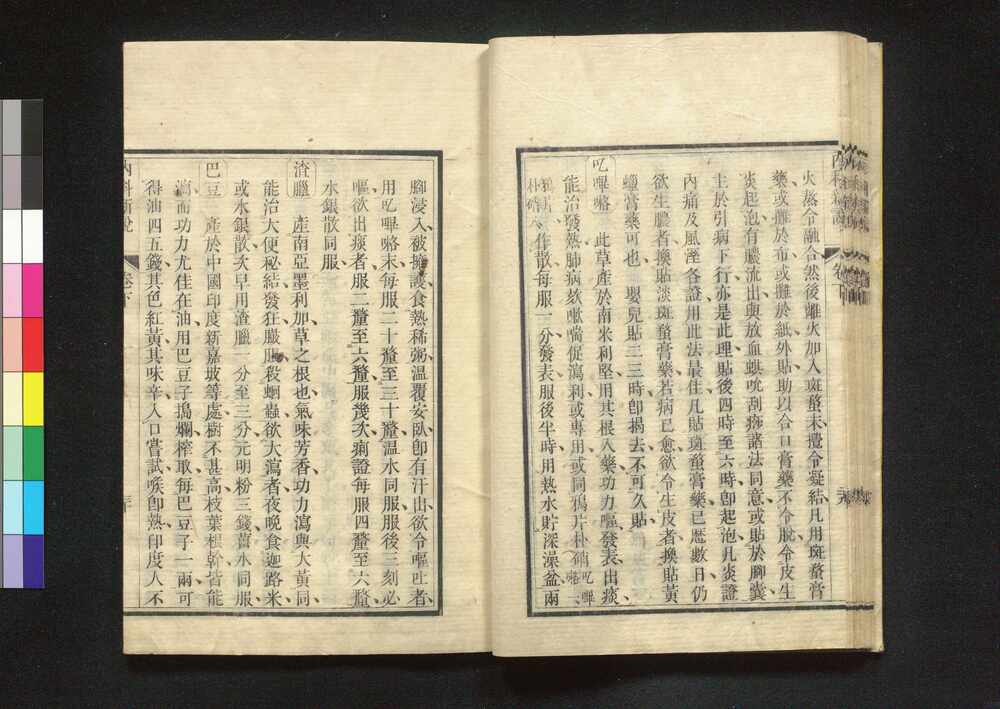 火蒸令融合然後離火加入斑蝥末攪令凝結凡用斑蝥膏
藥或攤於布或攤於紙外貼助以合口膏藥不令脫令皮生
炎起泡有膿流出與放血蜞吮刮痧諸法同意或貼於腳囊
主於引病下行亦是此理貼後四時至六時卽起泡凡炎證
內痛及風溼各證用此法最佳凡貼斑蝥膏藥已歷數日仍
欲生膿者換貼淡斑蝥膏藥若病已愈欲令生皮者換貼黃
蠟膏藥可也 嬰兒貼二三時卽揭去不可久貼
吃嗶咯 此草產於南米利堅用其根入藥功力嘔發表出痰
能治發熱肺病欬嗽喘促瀉利或專用或同鴉片朴硝吃嗶咯一
作散每服一分發表服後半時用熱水貯深澡盆兩
腳浸入被擁護食熱稀粥溫覆安臥卽有汗出欲令嘔吐者
用吃嗶咯末每服二十釐至三十釐溫水同服服後三刻必
嘔欲出痰者服二釐至六釐服幾次痢證每服四釐至六釐
水銀散同服
渣臘 產南亞墨利加草之根也氣味芳香功力瀉與大黃同
能治大便秘結發狂臌脹殺蛔蟲欲大瀉者夜晚食迦路米
或水銀散次早用渣臘一分至三分元明粉三錢舊水同服
巴豆 產於中國印度新嘉坡等處樹不甚高枝葉根幹皆能
瀉而功力尤佳在油用巴豆子搗爛榨取每巴豆子一兩可
得油四五錢其色紅黃其味辛入口嘗試喉卽熱印度人不
內科新說 卷下